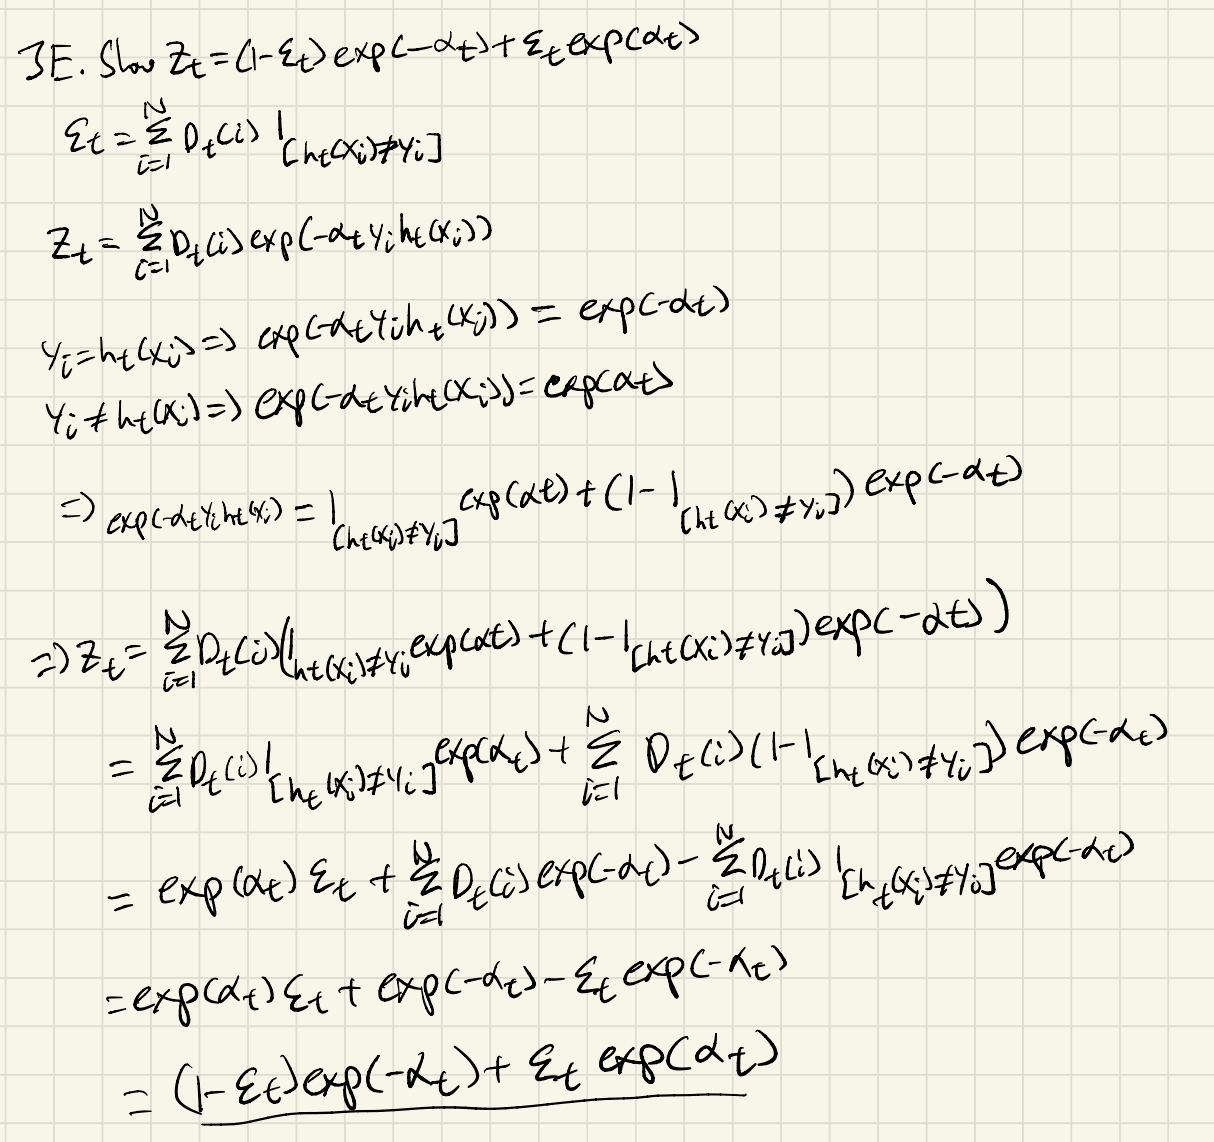 3E. Show Z_t = (1-ε_t) exp(-α_t) + ε_t exp(α_t)
ε_t = Σ_{i=1}^{N} D_t(i) 1_{[h_t(x_i)≠y_i]}
Z_t = Σ_{i=1}^{N} D_t(i) exp(-α_t y_i h_t(x_i))
y_i = h_t(x_i) => exp(-α_t y_i h_t(x_i)) = exp(-α_t)
y_i ≠ h_t(x_i) => exp(-α_t y_i h_t(x_i)) = exp(α_t)
=> exp(-α_t y_i h_t(x_i)) = 1_{[h_t(x_i)≠y_i]} exp(α_t) + (1-1_{[h_t(x_i)≠y_i]}) exp(-α_t)
=> Z_t = Σ_{i=1}^{N} D_t(i) (1_{h_t(x_i)≠y_i} exp(α_t) + (1-1_{[h_t(x_i)≠y_i]}) exp(-α_t))
= Σ_{i=1}^{N} D_t(i) 1_{[h_t(x_i)≠y_i]} exp(α_t) + Σ_{i=1}^{N} D_t(i) (1-1_{[h_t(x_i)≠y_i]}) exp(-α_t)
= exp(α_t) ε_t + Σ_{i=1}^{N} D_t(i) exp(-α_t) - Σ_{i=1}^{N} D_t(i) 1_{[h_t(x_i)≠y_i]} exp(-α_t)
= exp(α_t) ε_t + exp(-α_t) - ε_t exp(-α_t)
= (1-ε_t) exp(-α_t) + ε_t exp(α_t)